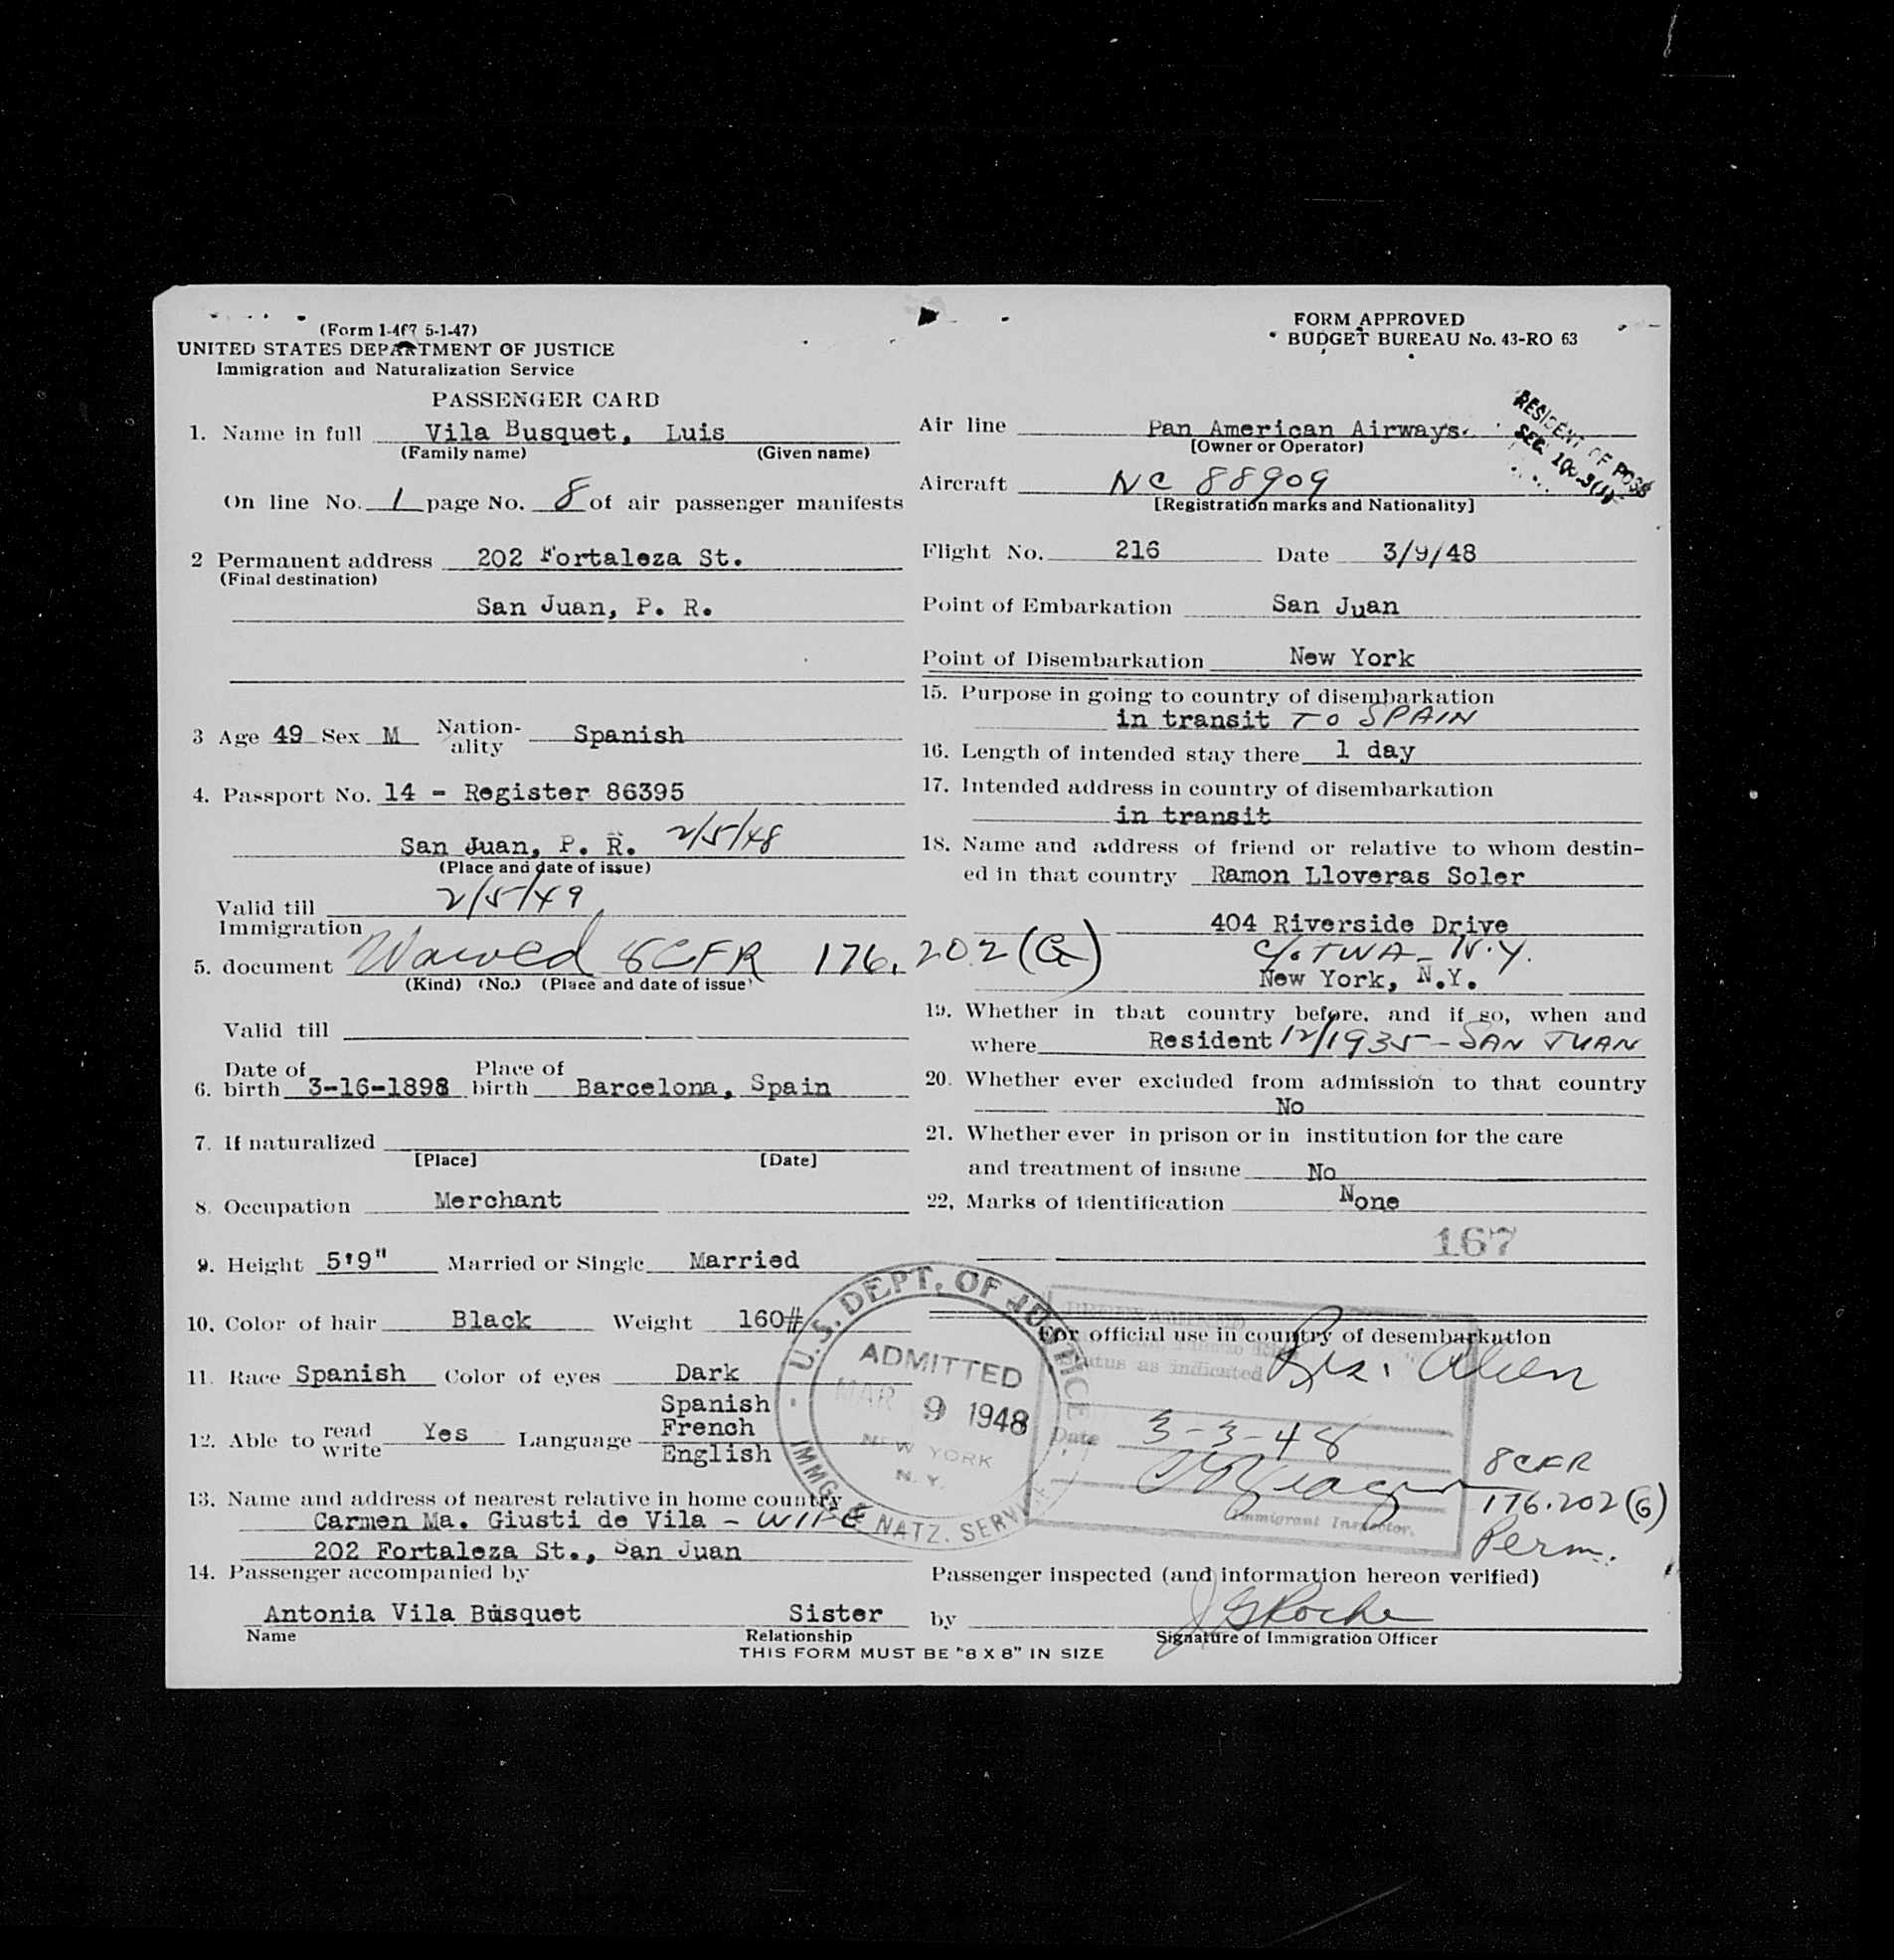 (Form 1-467 5-1-47)
UNITED STATES DEPARTMENT OF JUSTICE
Immigration and Naturalization Service
PASSENGER CARD
1. Name in full Vila Busquet, Luis
(Family name) (Given name)
On line No. 1 page No. 8 of air passenger manifests
2 Permanent address 202 Fortaleza St.
(Final destination)
San Juan, P. R.
3 Age 49 Sex M Nation-ality Spanish
4. Passport No. 14 - Register 86395
San Juan, P. R. 2/5/48
(Place and date of issue)
Valid till 2/5/49
Immigration
5. document Waived 8CFR 176.202(G)
(Kind) (No.) (Place and date of issue)
Valid till
Date of Place of
6. birth 3-16-1898 birth Barcelona, Spain
7. If naturalized
[Place] [Date]
8. Occupation Merchant
9. Height 5'9" Married or Single Married
10. Color of hair Black Weight 160#
11. Race Spanish Color of eyes Dark
12. Able to read write Yes Language Spanish
French
English
13. Name and address of nearest relative in home country
Carmen Ma. Giusti de Vila - WIFE
202 Fortaleza St., San Juan
14. Passenger accompanied by
Antonia Vila Busquet Sister
Name Relationship
THIS FORM MUST BE "8 X 8" IN SIZE
FORM APPROVED
BUDGET BUREAU No. 43-RO 63
RESIDENT OF POSS
SEC.
Air line Pan American Airways.
[Owner or Operator]
Aircraft NC 88909
[Registration marks and Nationality]
Flight No. 216 Date 3/9/48
Point of Embarkation San Juan
Point of Disembarkation New York
15. Purpose in going to country of disembarkation
in transit TO SPAIN
16. Length of intended stay there 1 day
17. Intended address in country of disembarkation
in transit
18. Name and address of friend or relative to whom destin-
ed in that country Ramon Lloveras Soler
404 Riverside Drive
C/o TWA - N.Y.
New York, N.Y.
19. Whether in that country before, and if so, when and
where Resident 12/1935 - SAN JUAN
20. Whether ever excluded from admission to that country
No
21. Whether ever in prison or in institution for the care
and treatment of insane No
22. Marks of identification None
167
For official use in country of desembarkation
status as indicated Res. Alien
Date 3-3-48
Immigrant Inspector.
8CFR
176.202(G)
Perm.
U.S. DEPT. OF JUSTICE
ADMITTED
MAR 9 1948
NEW YORK
N.Y.
IMMG. & NATZ. SERVICE
Passenger inspected (and information hereon verified)
by J G Roche
Signature of Immigration Officer